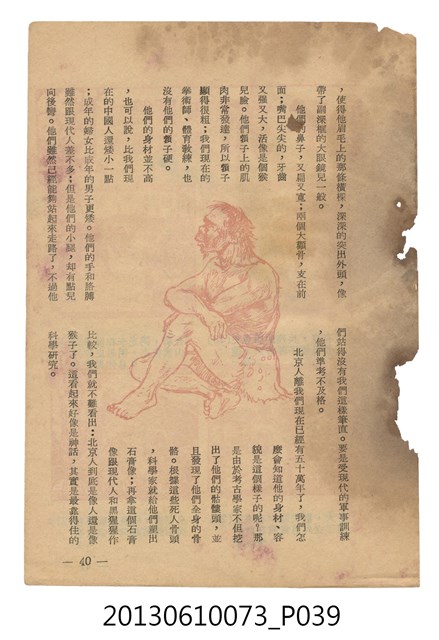 ，使得他眉毛上的那條橫樑，深深的突出外頭，像
帶了副深框的大眼鏡兒一般。
他們的鼻子，又扁又寬；兩個大顴骨，支在前
面；嘴巴尖尖的，牙齒
又强又大，活像是個猴
兒臉。他們頸子上的肌
肉非常發達，所以頸子
顯得很粗；我們現在的
拳術師、體育教練，也
沒有他們的頸子硬。
他們的身材並不高
，也可以說，比我們現
在的中國人還矮小一點
；成年的婦女比成年的男子更矮。他們的手和胳膊
雖然跟現代人差不多；但是他們的小腿，却有點兒
向後彎。他們雖然已經能夠站起來走路了，不過他
們站得沒有我們這樣筆直。要是受現代的軍事訓練
，他們準考不及格。
北京人離我們現在已經有五十萬年了，我們怎
麼會知道他的身材、容
貌是這個樣子的呢？那
是由於考古學家不但挖
出了他們的骷髏頭，並
且發現了他們全身的骨
骼。根據這些死人骨頭
，科學家就給他們塑出
石膏像；再拿這個石膏
像跟現代人和黑猩猩作
比較，我們就不難看出：北京人到底是像人還是像
猴子了。這看起來好像是神話，其實是最靠得住的
科學研究。
— 40 —
20130610073_P039